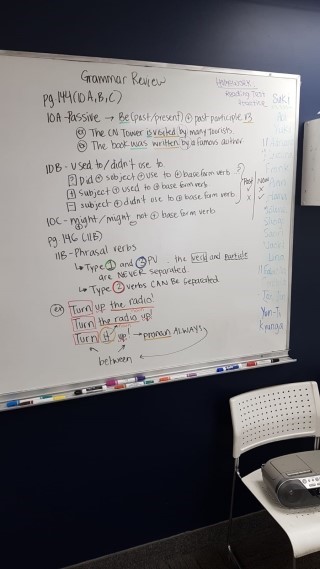 Grammar Review
HOMEWORK
Reading Test
Practice
pg.144 (10A,B,C)
10A - Passive → Be (past/present) + past participle
ex The CN Tower is visited by many tourists.
ex The book was written by a famous author
10B - Used to / didn't use to
? Did + subject + use to + base form verb
+ subject + used to + base form verb
- subject + didn't use to + base form verb
Past Now
10C - might / might not + base form verb
pg 146 (11B)
11B - Phrasal verbs
↳ Type 1 and 3 PV : the verb and particle
are NEVER separated.
↳ Type 2 verbs CAN BE separated
ex Turn up the radio!
Turn the radio up!
Turn it up! → pronoun ALWAYS
between
Yun-Ti
Kyungg